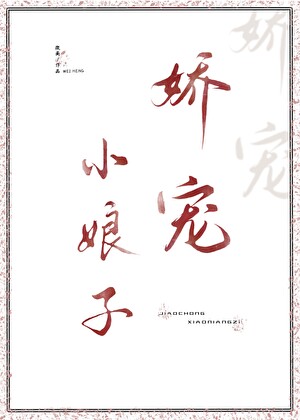 娇宠
娇宠
小娘子
作品
WEI HENG
JIAOCHONG
XIAONIANGZI